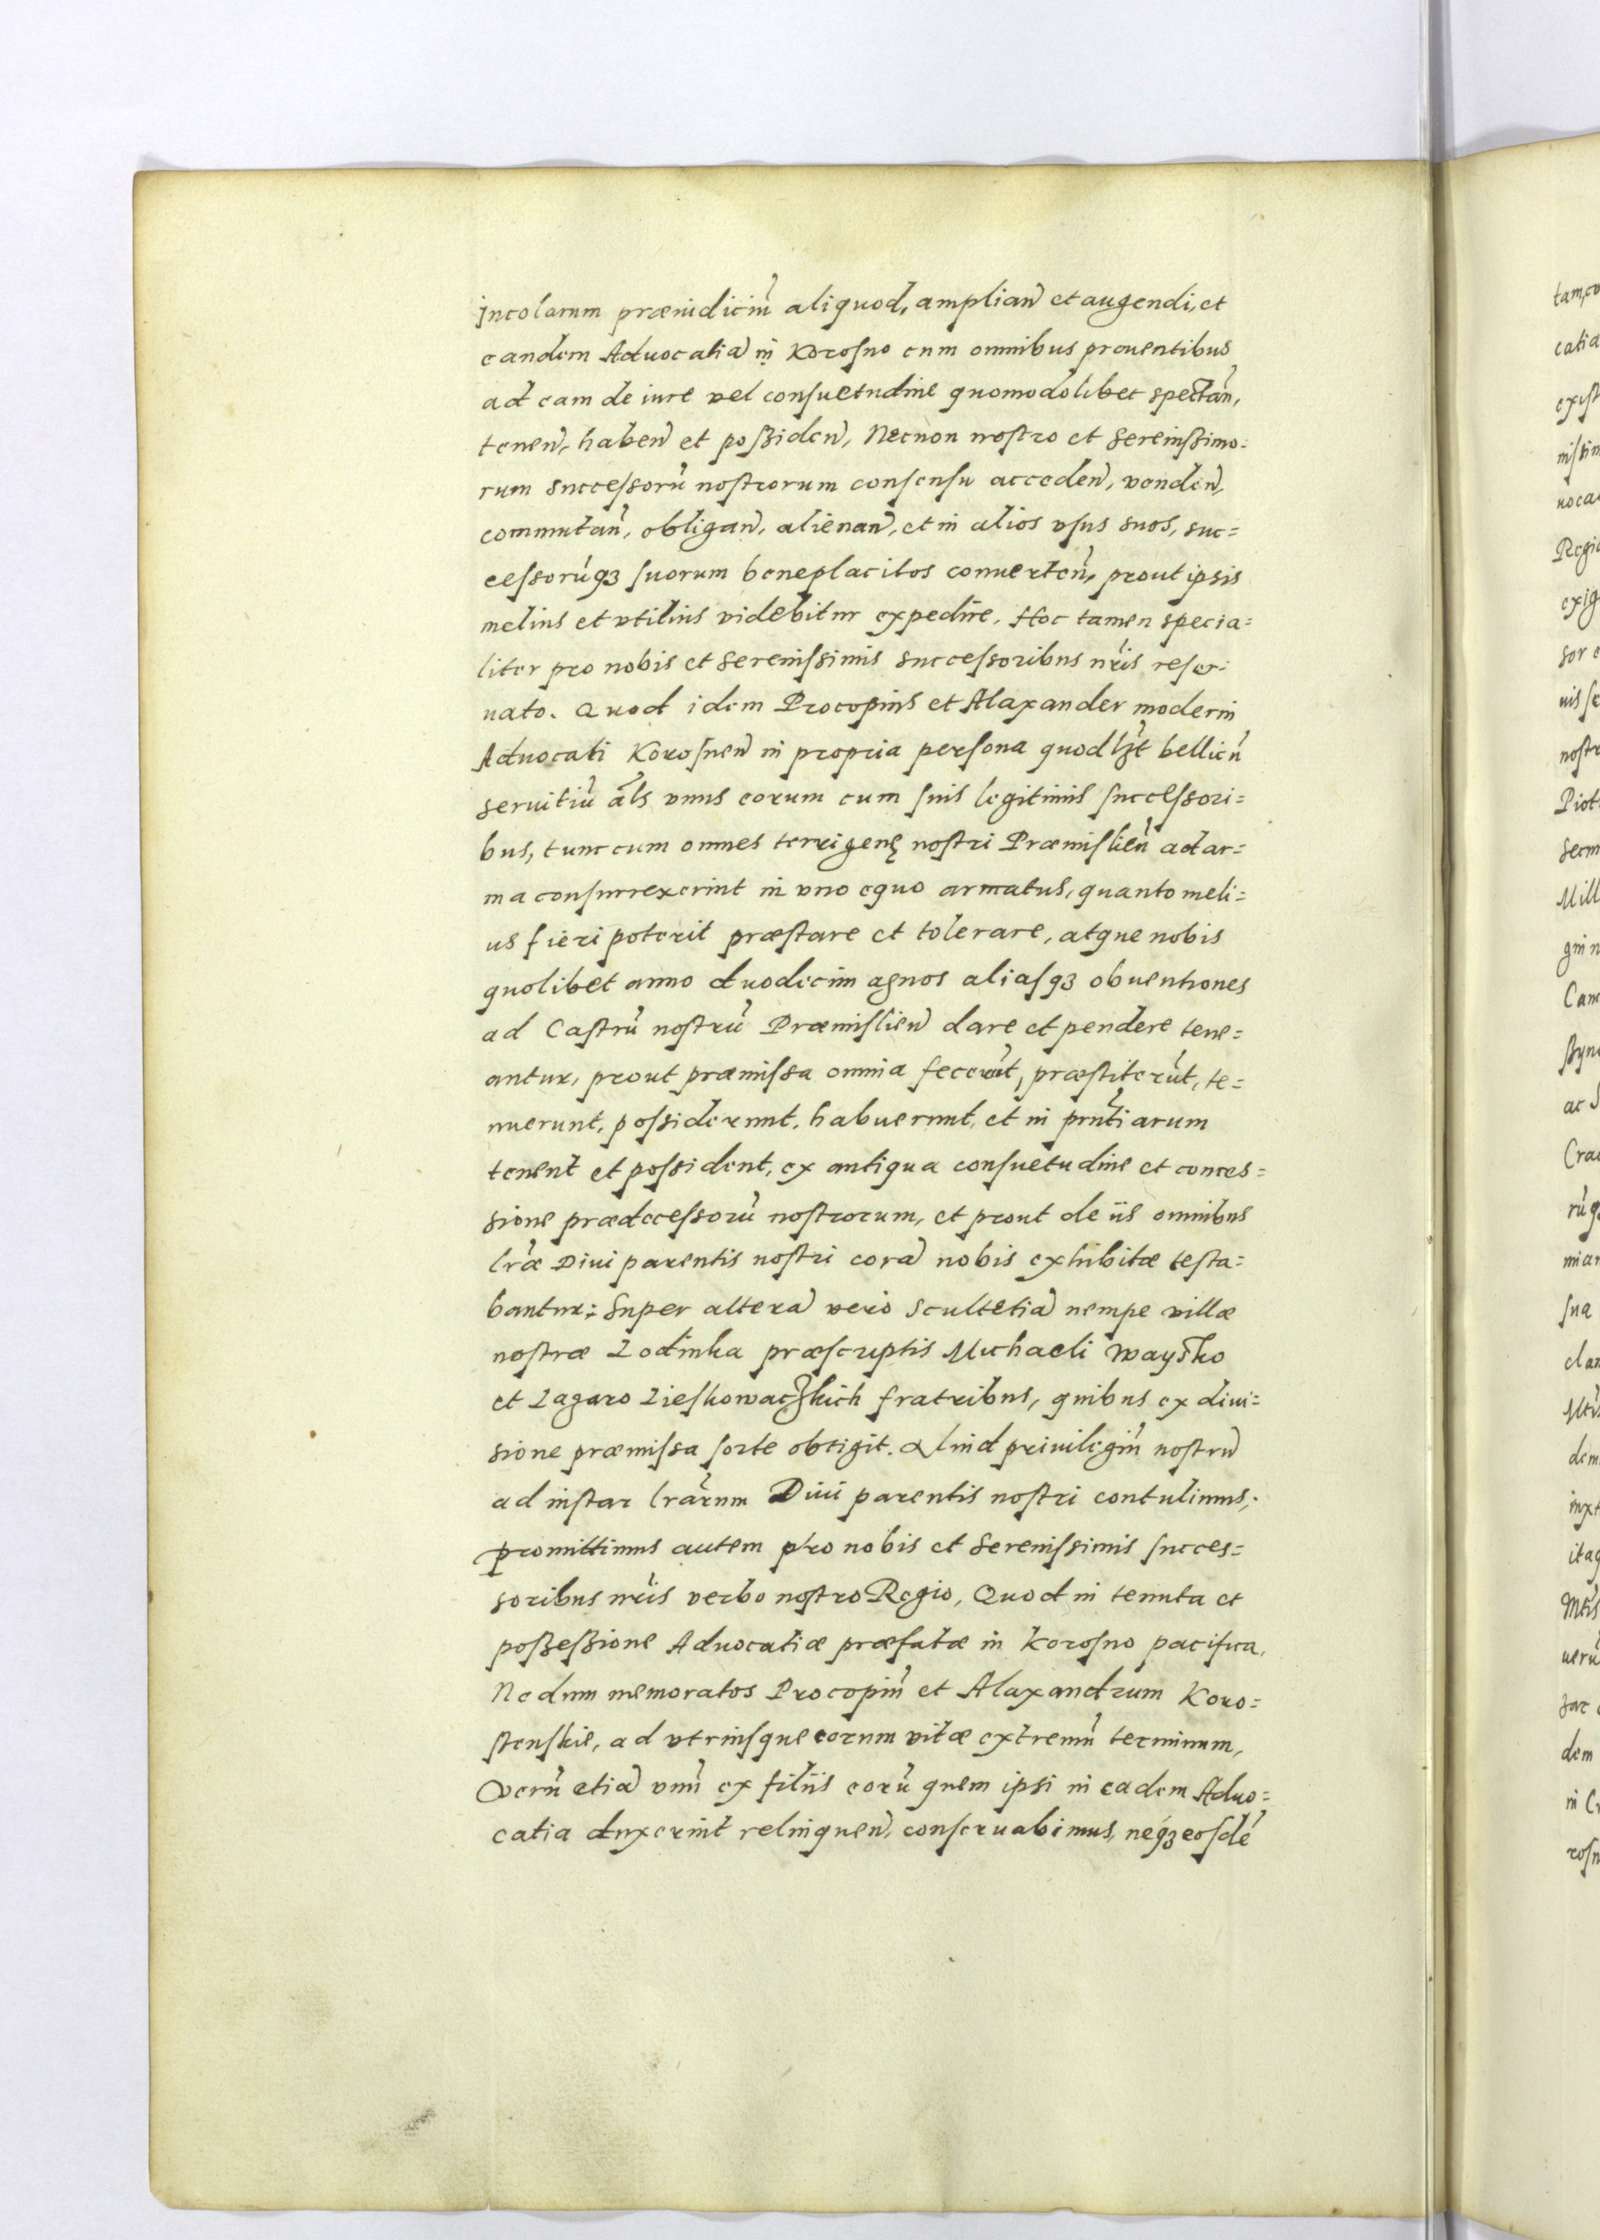 Incolarum præiudiciũ aliquod, amplian̄ et augendi, et
eandem Aduocatiā in Korosno cum omnibus prouentibus
ad eam de iure vel consuetudine quomodolibet spectan̄,
tenen̄, haben̄ et possiden̄, Necnon nostro et Serenissimo=
rum Successorũ nostrorum consensu acceden̄, venden̄,
commutan̄, obligan̄, alienan̄, et in alios vsus suos, suc=
cessorũq3 suorum beneplacitos conuerten̄, prout ipsis
melius et vtilius videbitur expedire. Hoc tamen specia=
liter pro nobis et Serenissimis Successoribus nr̃is reser=
uato. Quod idem Procopius et Alaxander moderni
Aduocati Korosnen̄ in propria persona quodl3t bellicũ
seruitiũ al̃s vnus eorum cum suis legitimis successori=
bus, tunc cum omnes terrigenę nostri Præmislien̄ ad ar=
ma consurrexerint in vno equo armatus, quanto meli=
us fieri poterit præstare et tolerare, atque nobis
quolibet anno duodecim agnos aliasq3 obuentiones
ad Castrũ nostrũ Præmislien̄ dare et pendere tene=
antur, prout præmissa omnia fecerũt, præstiterũt, te=
nuerunt, possiderunt, habuerunt, et in prñtiarum
tenent et possident, ex antiqua consuetudine et conces=
sione prædecessorũ nostrorum, et prout de iis omnibus
lr̃æ Diui parentis nostri corā nobis exhibitæ testa=
bantur: Super alterā vero Scultetiā nempe villæ
nostræ Lodinka præscriptis Michaeli Waysko
et Lazaro Lieskowaczkich fratribus, quibus ex diui=
sione præmissa sorte obtigit. Aliud priuilegiũ nostrũ
ad instar lr̃arum Diui parentis nostri contulimus,
promittimus autem pro nobis et Serenissimis succes=
soribus nr̃is verbo nostro Regio, Quod in tenuta et
possessione Aduocatiæ præfatæ in Korosno pacifica,
Nedum memoratos Procopiũ et Alaxandrum Koro=
stenskie, ad vtriusque eorum vitæ extremũ terminum,
Verũ etiā vnũ ex filiis eorũ quem ipsi in eadem Aduo=
catia duxerint relinquen̄, conseruabimus, neq3 eosdẽ